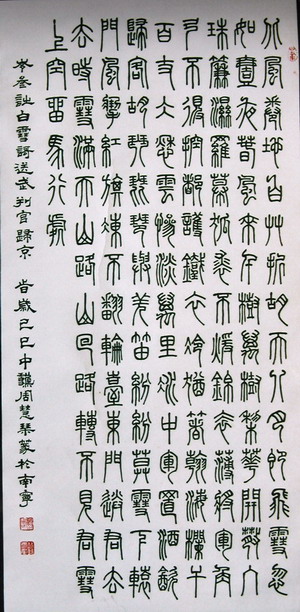 北風捲地白草折胡天八月即飛雪忽
如壹夜春風來千樹萬樹梨花開散入
珠簾濕羅幕狐裘不煖錦衾薄將軍角
弓不得控都護鐵衣冷猶著瀚海欄干
百丈冰愁雲慘淡萬里凝中軍置酒飲
歸客胡琴琵琶與羌笛紛紛莫雪下轅
門風掣紅旗凍不翻輪臺東門送君去
去時雪滿天山路山回路轉不見君雪
上空留馬行處
岑參詠白雪謌送武判官歸京 旹歲己巳中龝周慧琴篆於南寧